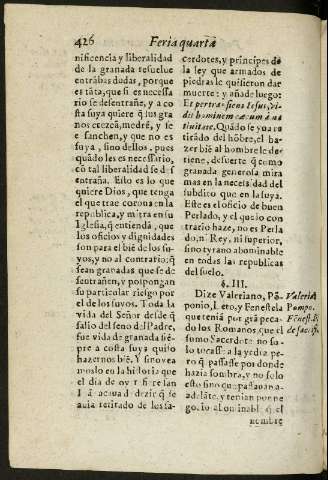 426 Feria quarta
nificencia y liberalidad
de la granada resuelue
entrābas dudas, porque
es tāta, que si es necessa
rio se desentrañe, y a co
sta suya quiere q̄ sus gra
nos crezcā, medrē, y se
sanchen, y que no es
suya, sino dellos, pues
quādo les es necessario,
cō tal liberalidad se des
entraña. Esto es lo que
quiere Dios, que tenga
el que trae corona en la
republica, y mitra en su
Iglesia, q̄ entienda, que
los oficios y dignidades
son para el biē de los su
yos, y no al contrario; q̄
sean granadas que se de
sentrañen, y pospongan
su particular riesgo por
el de los suyos. Toda la
vida del Señor desde q̄
salio del seno del Padre,
fue vida de granada siē-
pre a costa suya quiso
hazernos biē. Y si no vea
moslo en la historia que
el dia de oy
dezir q̄ se
auia retirado de los sa-
cerdotes, y principes de
la ley que armados de
piedras le quisieron dar
muerte: y añade luego:
Et pertransiens Iesus, vi-
dit hominem cæcum à na
tiuitate. Quādo se yua re
tirādo del hōbre, el ha-
zer biē al hombre le de
tiene, desuerte q̄ como
granada generosa mira
mas en la necessidad del
subdito que en la suya.
Este es el oficio de buen
Perlado, y el que lo con
trario haze, no es Perla
do, ni Rey, ni superior,
sino tyrano abominable
en todas las republicas
del suelo.
§. III.
Dize Valeriano, Pō-
ponio, Leto, y Fenestela
que tenia por grā peca-
do los Romanos, que el
sumo Sacerdote no so
lo tocasse a la yedra, pe
ro q̄ passasse por donde
hazia sombra, y no solo
esto sino que passauan a-
adelāte, y tenian por ne
gocio abominable q̄ el
nombre
Valeria
Pompo.
Fenest. li.
de sacer.